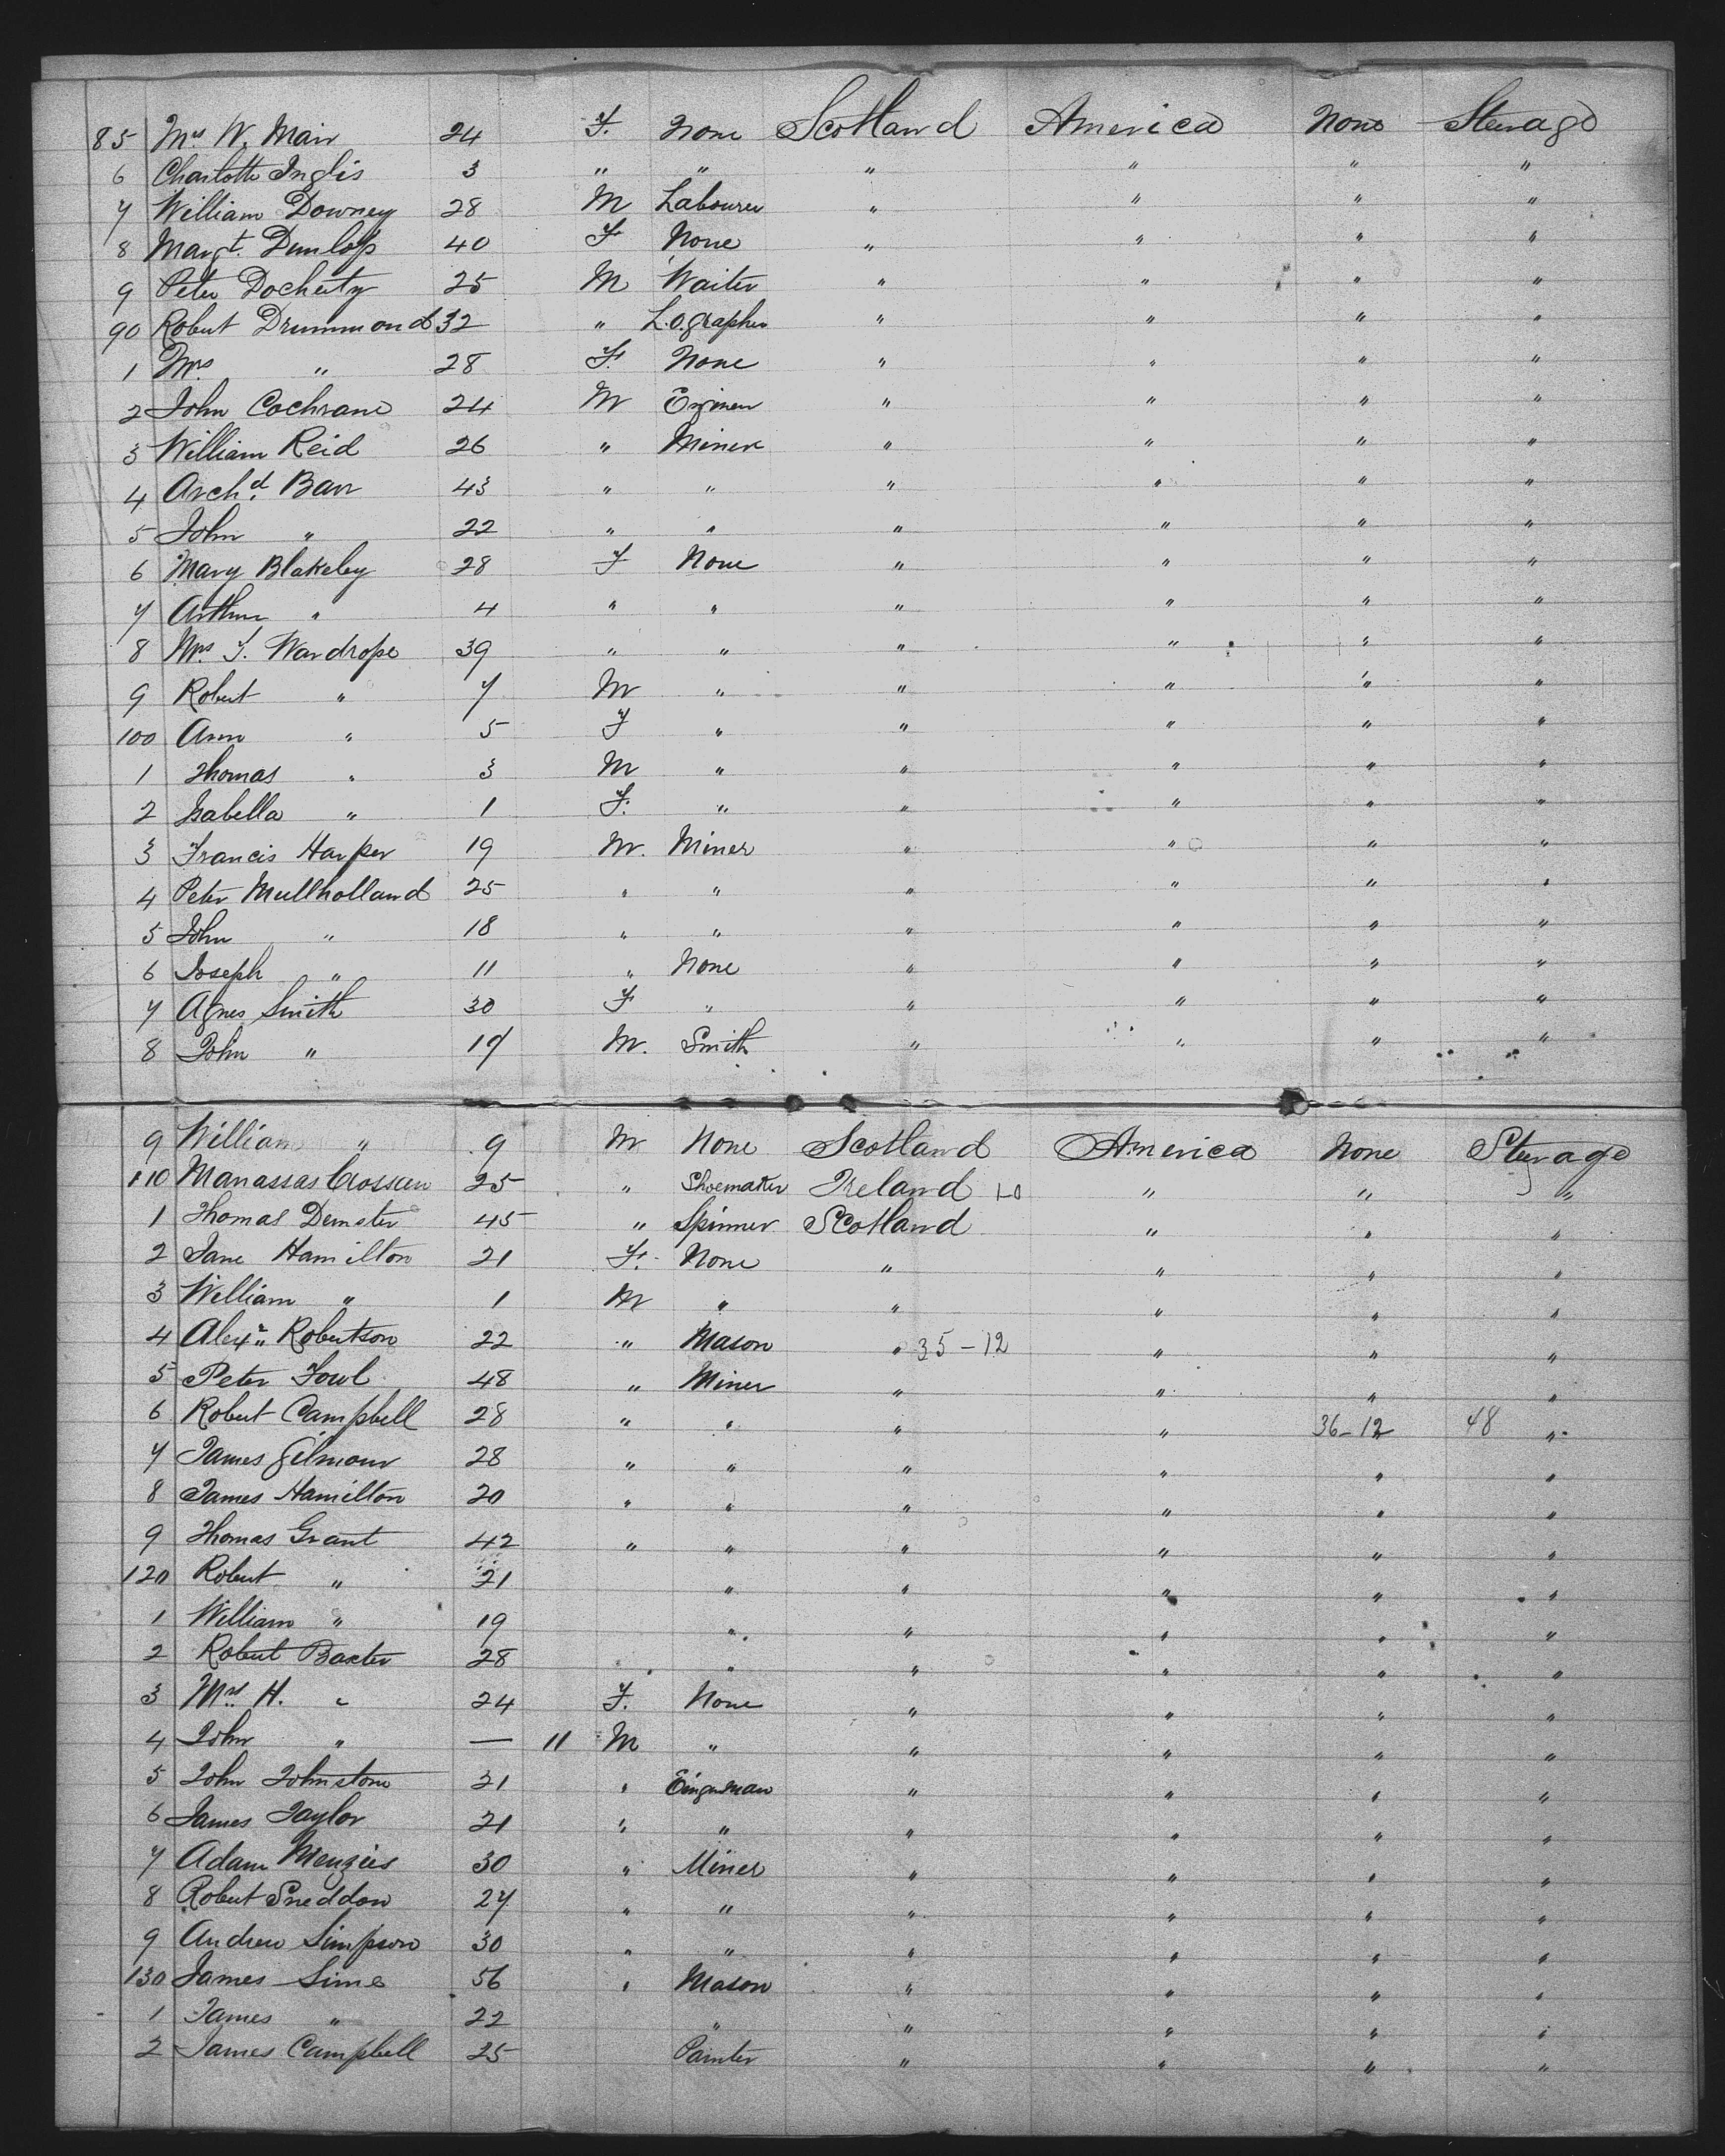 85 Mrs W. Mair 24 F. None Scotland America None Steerage
6 Charlotte Inglis 3 " " " " " "
7 William Downey 28 M Labourer " " " "
8 Margt. Dunlop 40 F None " " " "
9 Peter Docherty 25 M Waiter " " " "
90 Robert Drummond 32 " L.ographer " " " "
1 Mrs " 28 F. None " " " "
2 John Cochrane 24 M " " " "
3 William Reid 26 " Miner " " " "
4 Archd. Barr 43 " " " " " "
5 John " 22 " " " " " "
6 Mary Blakeley 28 F None " " " "
7 Arthur " 4 " " " " " "
8 Mrs J. Wardrope 39 " " " " " "
9 Robert " 7 M " " " " "
100 Ann " 5 F " " " " "
1 Thomas " 3 M " " " " "
2 Isabella " 1 F. " " " " "
3 Francis Harper 19 M. Miner " " " "
4 Peter Mullholland 25 " " " " " "
5 John " 18 " " " " " "
6 Joseph " 11 " None " " " "
7 Agnes Smith 30 F " " " " "
8 John " 17 M. Smith " " " "
9 William " 9 M None Scotland America None Steerage
110 Manassas Crossen 25 " Shoemaker Ireland 1-0 " " "
1 Thomas Demster 45 " Spinner Scotland " " "
2 Jane Hamilton 21 F. None " " " "
3 William " 1 M " " " " "
4 Alexr. Robertson 22 " Mason " 35-12 " " "
5 Peter Fowl 48 " Miner " " " "
6 Robert Campbell 28 " " " " 36-12 " 48 "
7 James Gilmour 28 " " " " " "
8 James Hamilton 20 " " " " " "
9 Thomas Grant 42 " " " " " "
120 Robert " 21 " " " " "
1 William " 19 " " " " "
2 Robert Baxter 28 " " " " "
3 Mrs H. " 24 F. None " " " "
4 John " — 11 M " " " " "
5 John Johnstone 31 " " " " "
6 James Taylor 21 " " " " " "
7 Adam Menzies 30 " Miner " " " "
8 Robert Sneddon 27 " " " " " "
9 Andrew Simpson 30 " " " " " "
130 James Sime 56 " Mason " " " "
1 James " 22 " " " " "
2 James Campbell 25 Painter " " " "